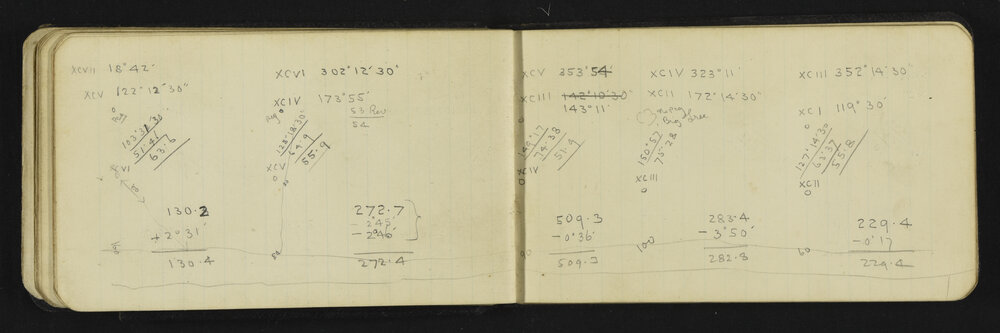 XCVII 18°42'
XCV 122°12'30"
Peg
103°31'30
51.41
63.6
XCVI
130.2
+2°31'
130.4
XCVI 302°12'30"
XCIV 173°55'
53 Rev
54
Peg
128°18'30"
64.9
55.9
XCV
272.7
- 2°45'
- 2°46'
272.4
XCV 353°54'
XCIII 142°10'30"
143°11'
149°17
74.38
51.4
XCIV
509.3
-0°36'
509.3
90
XCIV 323°11'
XCII 172°14'30"
no peg
Big tree
150°57
75.28
XCIII
283.4
-3°50'
282.8
100
XCIII 352°14'30"
XCI 119°30'
127°14'30
63.37
55.8
XCII
229.4
-0°17
229.4
60